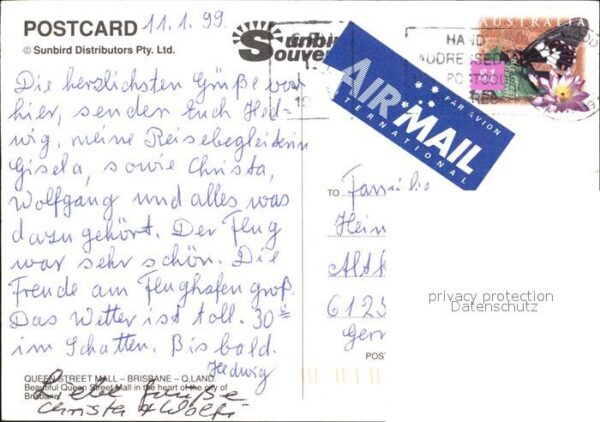 POSTCARD 11.1.99.
© Sunbird Distributors Pty. Ltd.
Sunbird
Souvenirs
Die herzlichsten Grüße von
hier, senden Euch Hed-
wig, meine Reisebegleiterin
Gisela, sowie Christa,
Wolfgang und alles was
dazu gehört. Der Flug
war sehr schön. Die
Freude am Flughafen groß.
Das Wetter ist toll. 30°
im Schatten. Bis bald.
Hedwig
QUEEN STREET MALL – BRISBANE – Q.LAND.
Beautiful Queen Street Mall in the heart of the city of
Brisbane.
Liebe Grüße
Christa + Wolfi
AUSTRALIA
HAND
ADDRESSED
POSTCODE
AIR MAIL
PAR AVION
INTERNATIONAL
TO Familie
Hein
Alth
6125
Germ
POS
privacy protection
Datenschutz